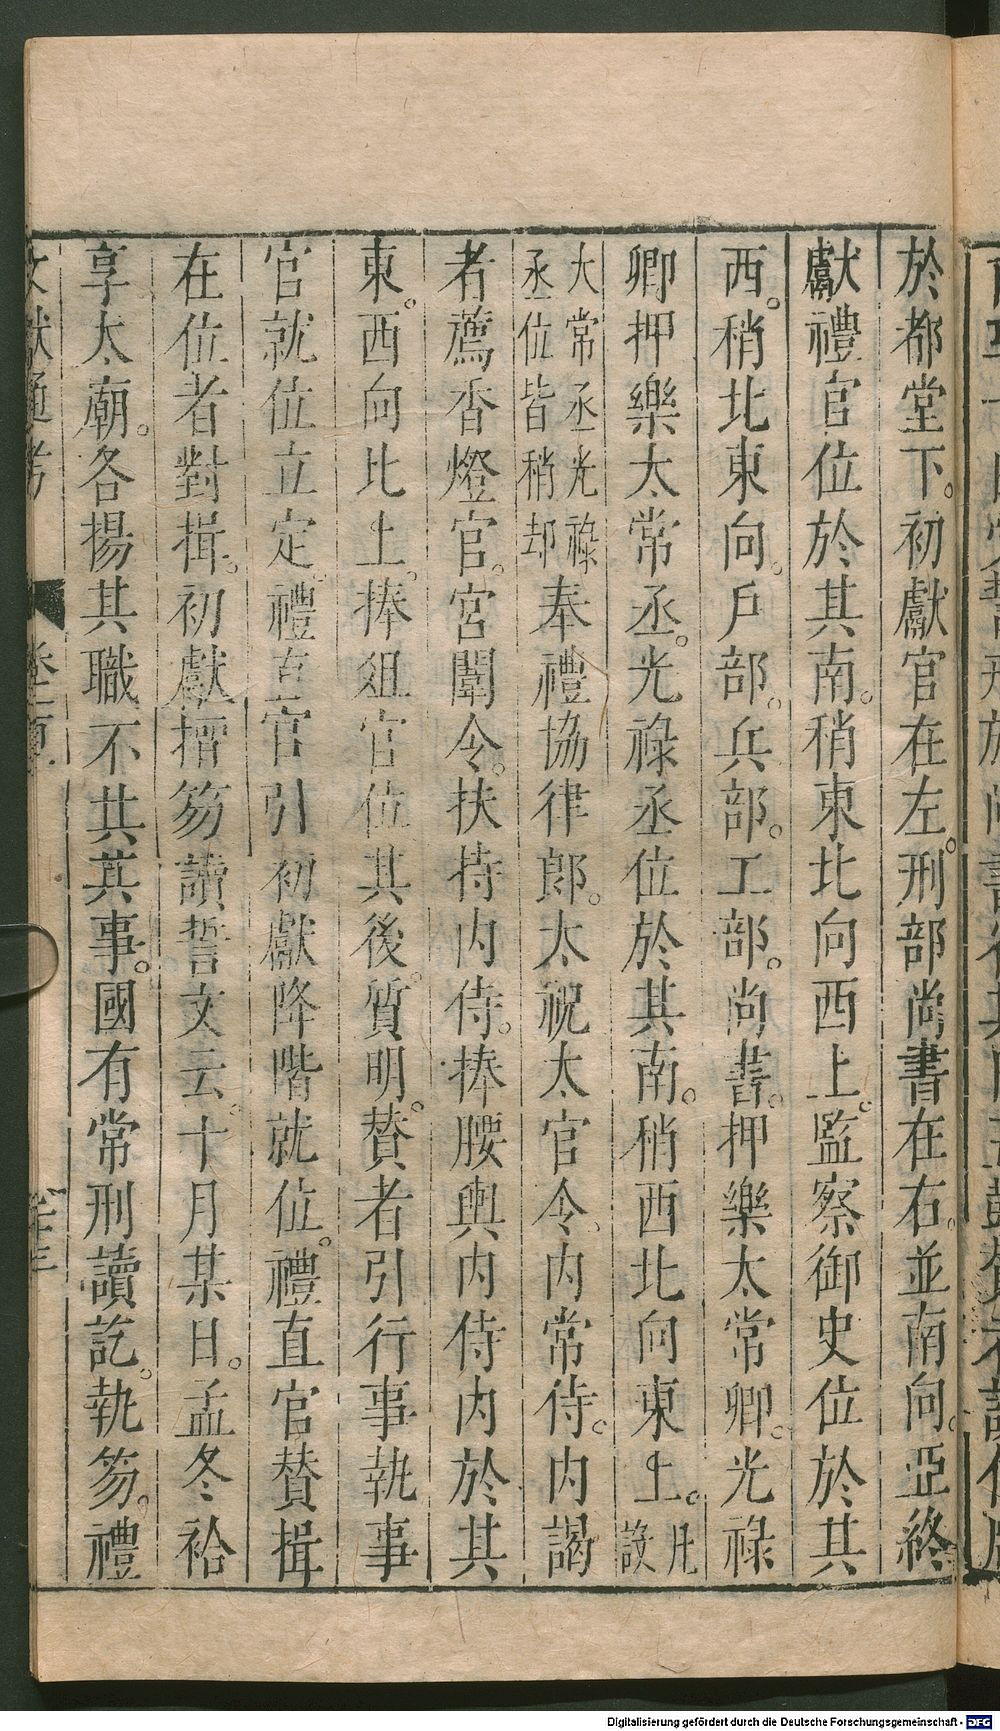 於都堂下。初獻官在左。刑部尚書在右。並南向。亞終
獻禮官位於其南。稍東北向西上。監察御史位於其
西。稍北東向。戶部。兵部。工部。尚書。押樂太常卿。光祿
卿押樂太常丞。光祿丞位於其南。稍西北向東上。凡設
大常丞光祿丞位皆稍却奉禮協律郎。太祝太官令。內常侍。內謁
者薦香燈官。宮闈令。扶持內侍。捧腰輿內侍內於其
東。西向北上。捧俎官位其後。質明。贊者引行事執事
官就位立定。禮直官引初獻降階就位。禮直官贊揖
在位者對揖。初獻搢笏讀誓文云。十月某日。孟冬祫
享太廟。各揚其職不共其事。國有常刑讀訖。執笏。禮
文獻通考